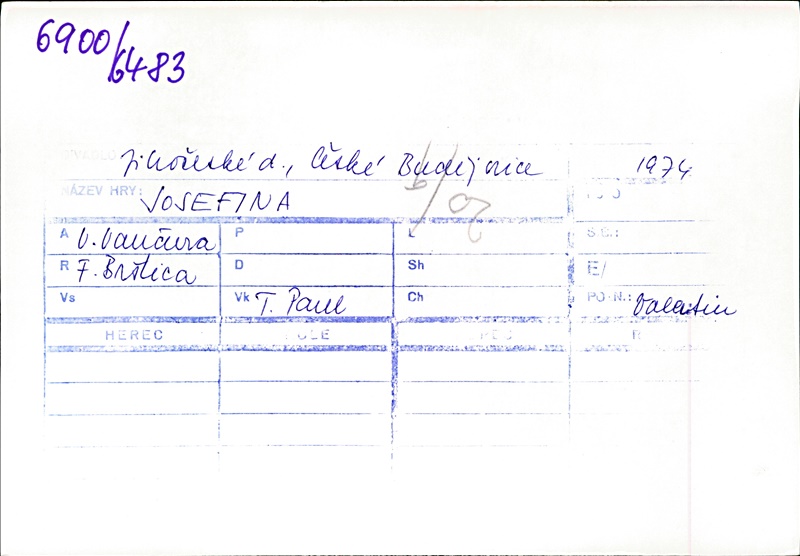 6900/
6483
Jihočeské d., České Budějovice 1974
NÁZEV HRY: JOSEFINA
A V. Vančura P
R F. Brštica D Sh E/
Vs Vk T. Paul Ch PO.N.: Valentin
HEREC